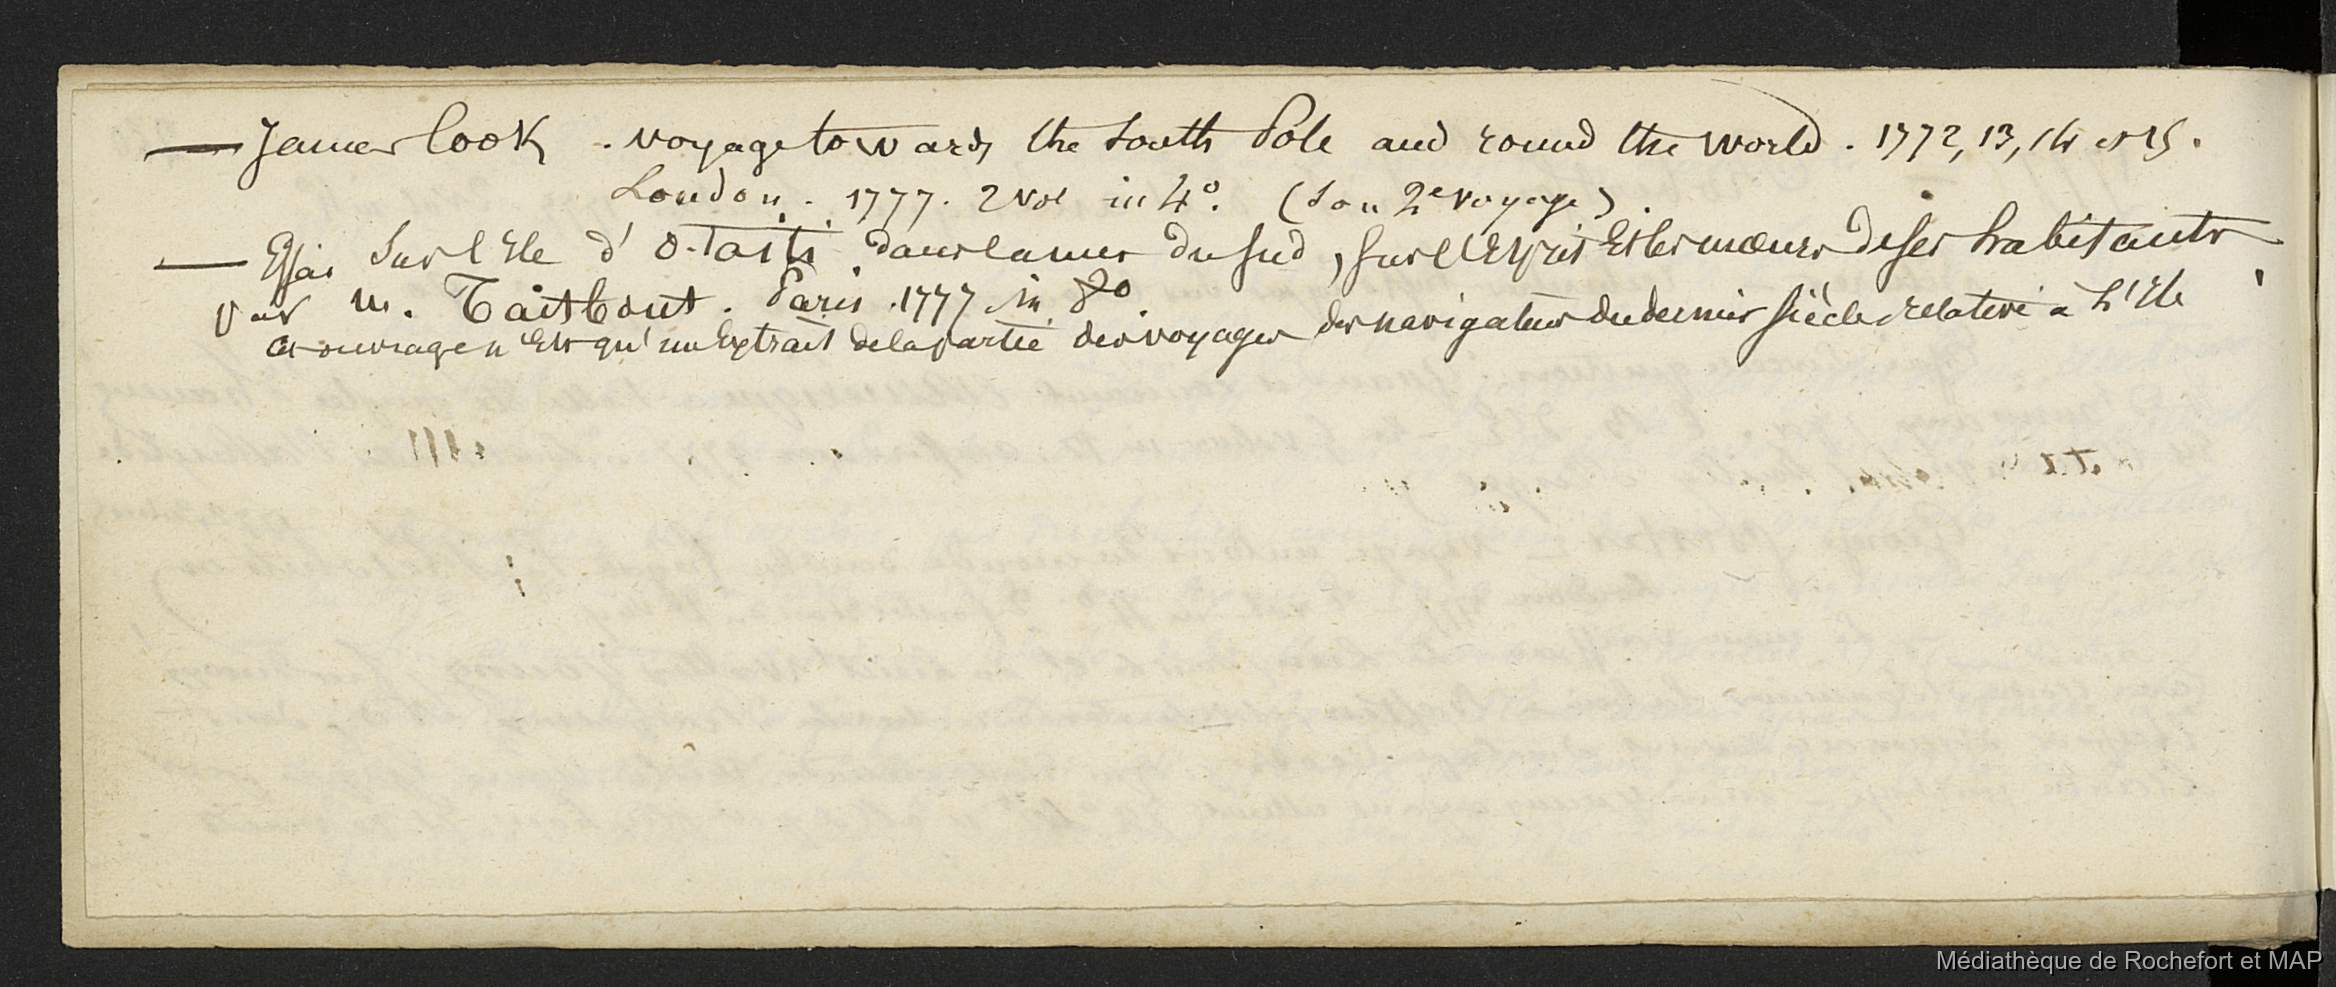 — James Cook . voyage towards the South Pole and round the world . 1772, 13, 14 et 15 .
London . 1777 . 2 vol in 4° . (Son 2e voyage) .
— Essai Sur l'Ile d'O-Taiti dans la mer du Sud , sur l'Esprit Et les mœurs de ses habitants
par M. Taitbout . Paris . 1777 in 8o
Cet ouvrage n'est qu'un Extrait de la partie des voyages des navigateurs du dernier siècle relative à L'Ile
Médiathèque de Rochefort et MAP